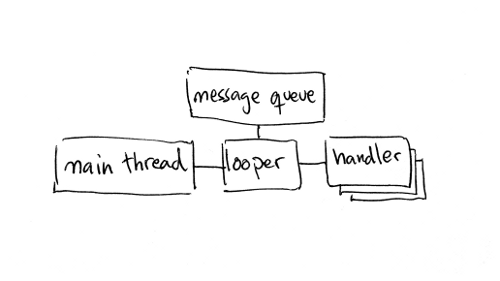 message queue
main thread
looper
handler